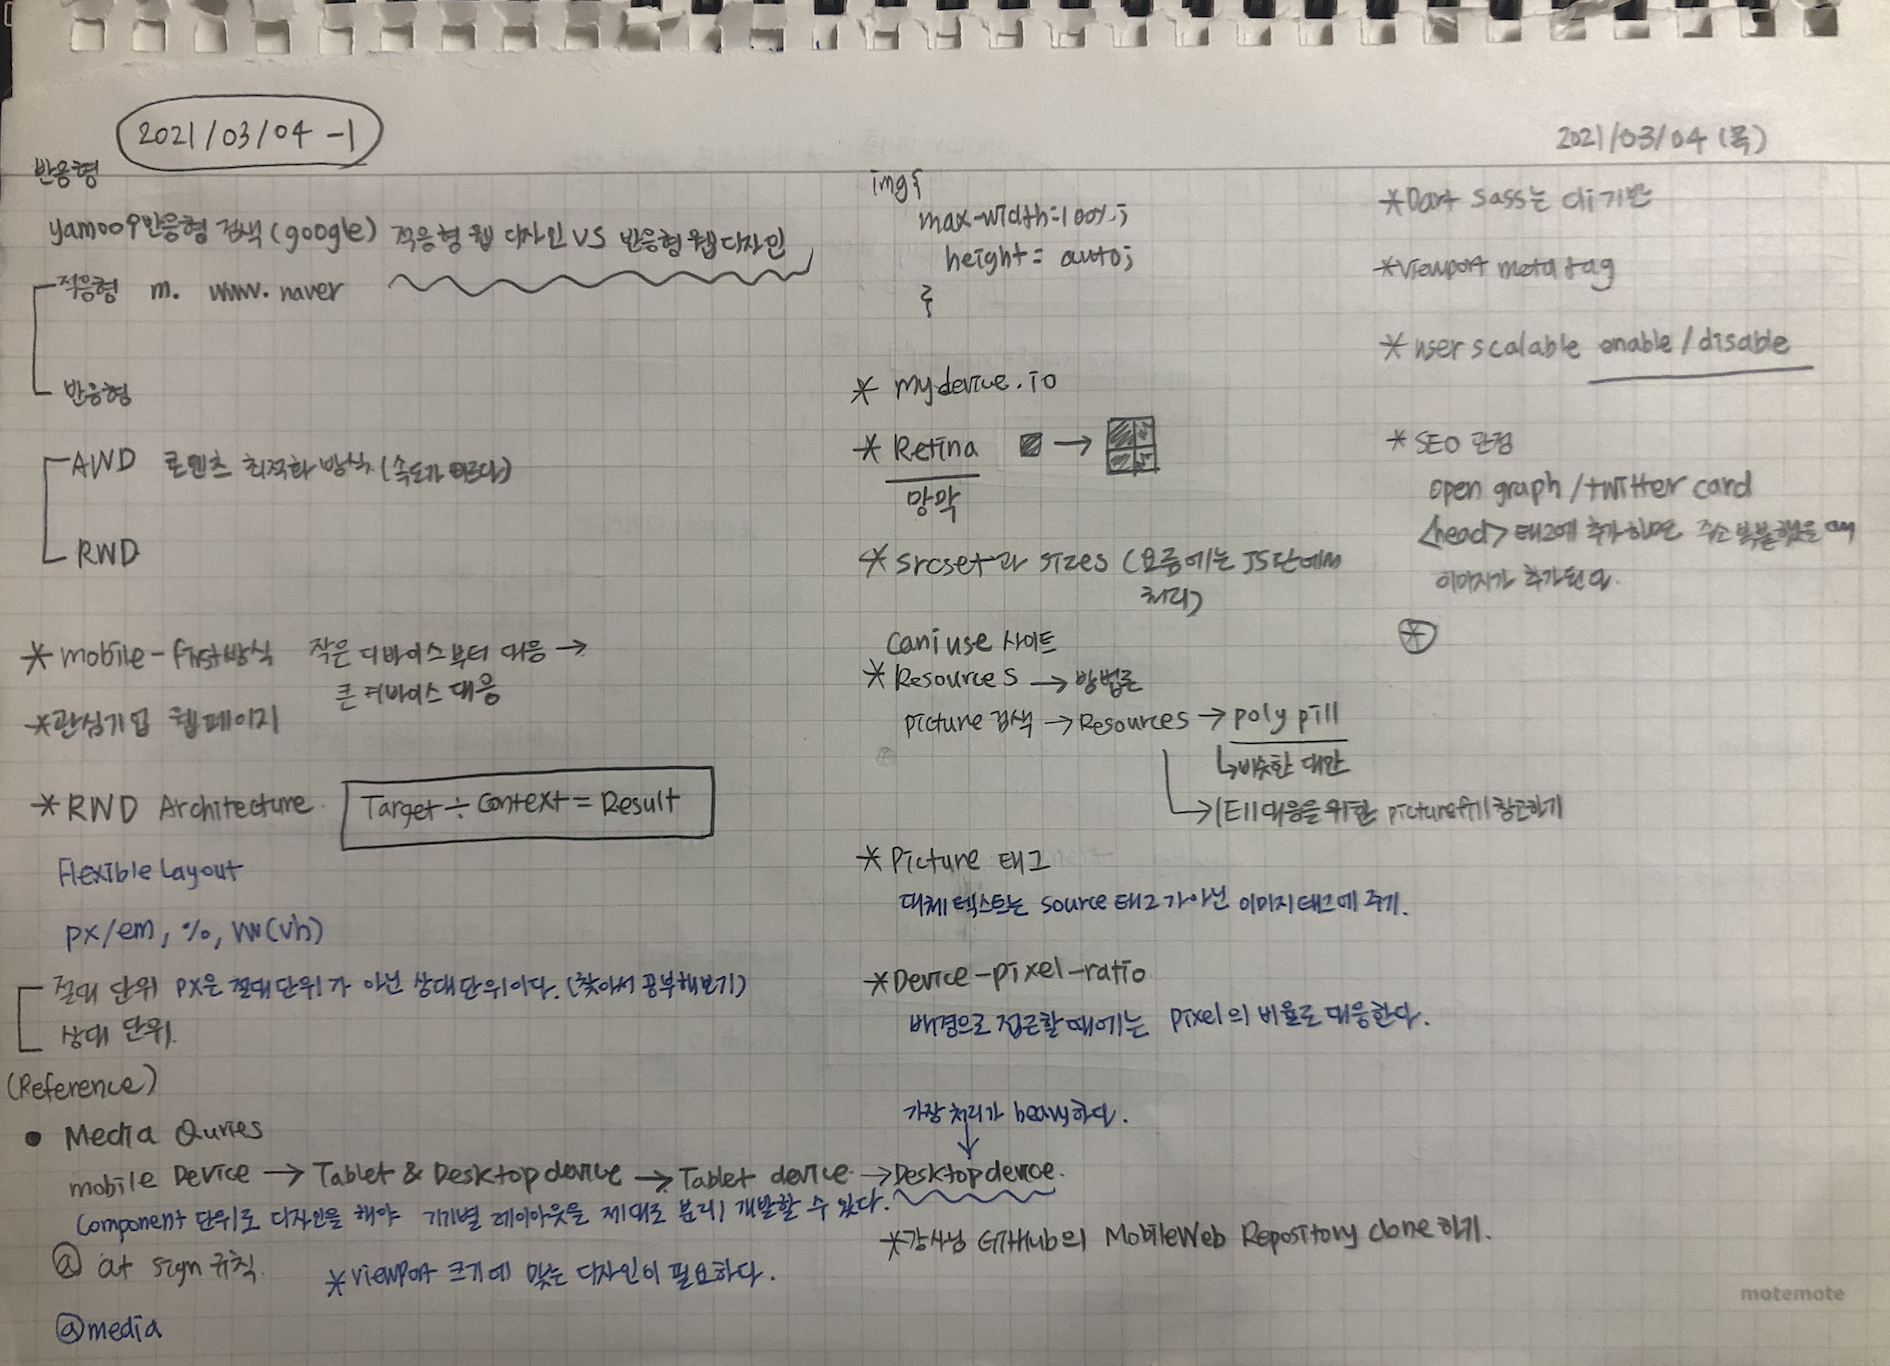 2021/03/04 -1
2021/03/04 (목)
반응형
yamoo9반응형 검색(google) 적응형 웹 디자인 VS 반응형 웹 디자인
적응형 m. www.naver
반응형
AWD 콘텐츠 최적화 방식 (속도가 빠르다)
RWD
*mobile-first방식 작은 디바이스부터 대응 →
큰 디바이스 대응
*관심기업 웹페이지
*RWD Architecture. Target ÷ Context = Result
Flexible Layout
px/em, %, vw(vh)
절대 단위 px은 절대단위가 아닌 상대단위이다. (찾아서 공부해보기)
상대 단위.
(Reference)
• Media Quries
mobile Device → Tablet & Desktop device → Tablet device → Desktop device.
Component 단위로 디자인을 해야 기기별 레이아웃을 제대로 분리/개발할 수 있다.
@ at sign 규칙.
*viewport 크기에 맞는 디자인이 필요하다.
@media
img{
max-width=100%;
height= auto;
}
* mydevice.io
* Retina →
망막
*srcset과 sizes (요즘에는 JS단에서
처리)
caniuse 사이트
*Resources → 방법론
picture 검색 → Resources → poly pill
↳비슷한 대안
→IE11대응을 위한 picturefill 참고하기
*Picture 태그
대체 텍스트는 source 태그가 아닌 이미지 태그에 주기.
*Device-pixel-ratio
배경으로 접근할 때에는 pixel의 비율로 대응한다.
가장 처리가 heavy하다.
*강사님 GitHub의 MobileWeb Repository clone 하기.
*Dart sass는 cli기반
*viewport meta tag
*user scalable enable/disable
*SEO 관점
open graph/twitter card
<head> 태그에 추가하면 주소 복붙했을 때
이미지가 추가된다.
*
motemote